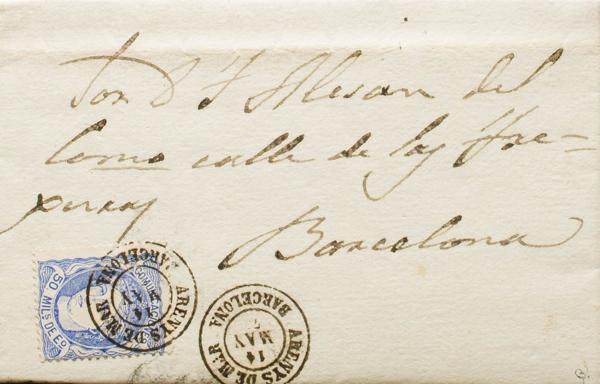 Sor D F Alesan del
Comº calle de las
Barcelona
50 MILS. DE E.
COMUNICAC
ARENYS DE MAR
BARCELONA
14
MAY
ARENYS DE MAR
BARCELONA
14
MAY